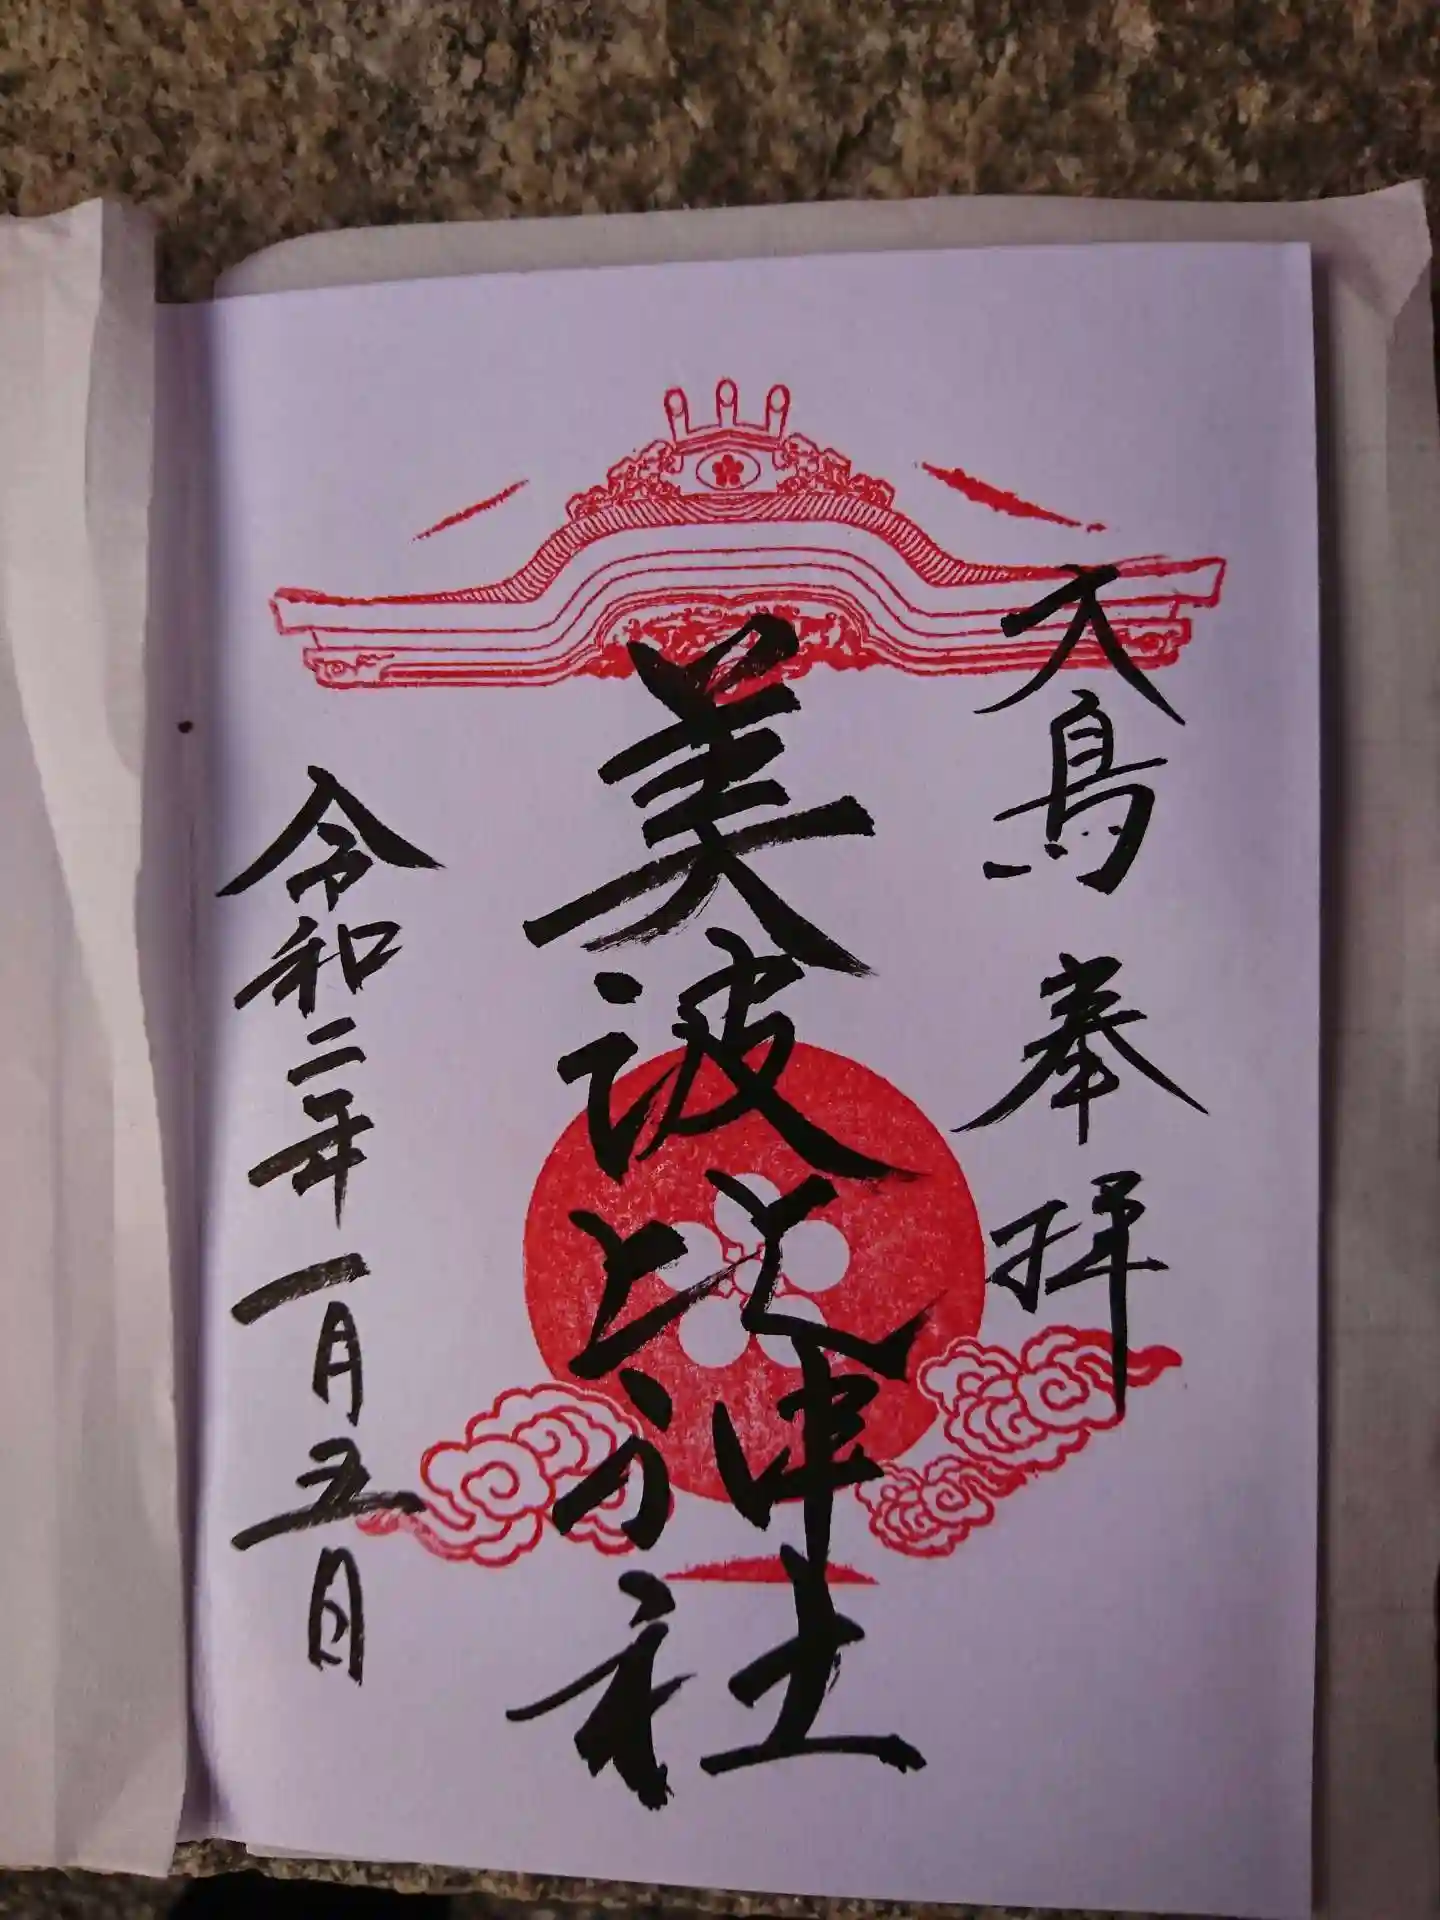 大鳥 奉拝
美波比神社
令和二年一月五日